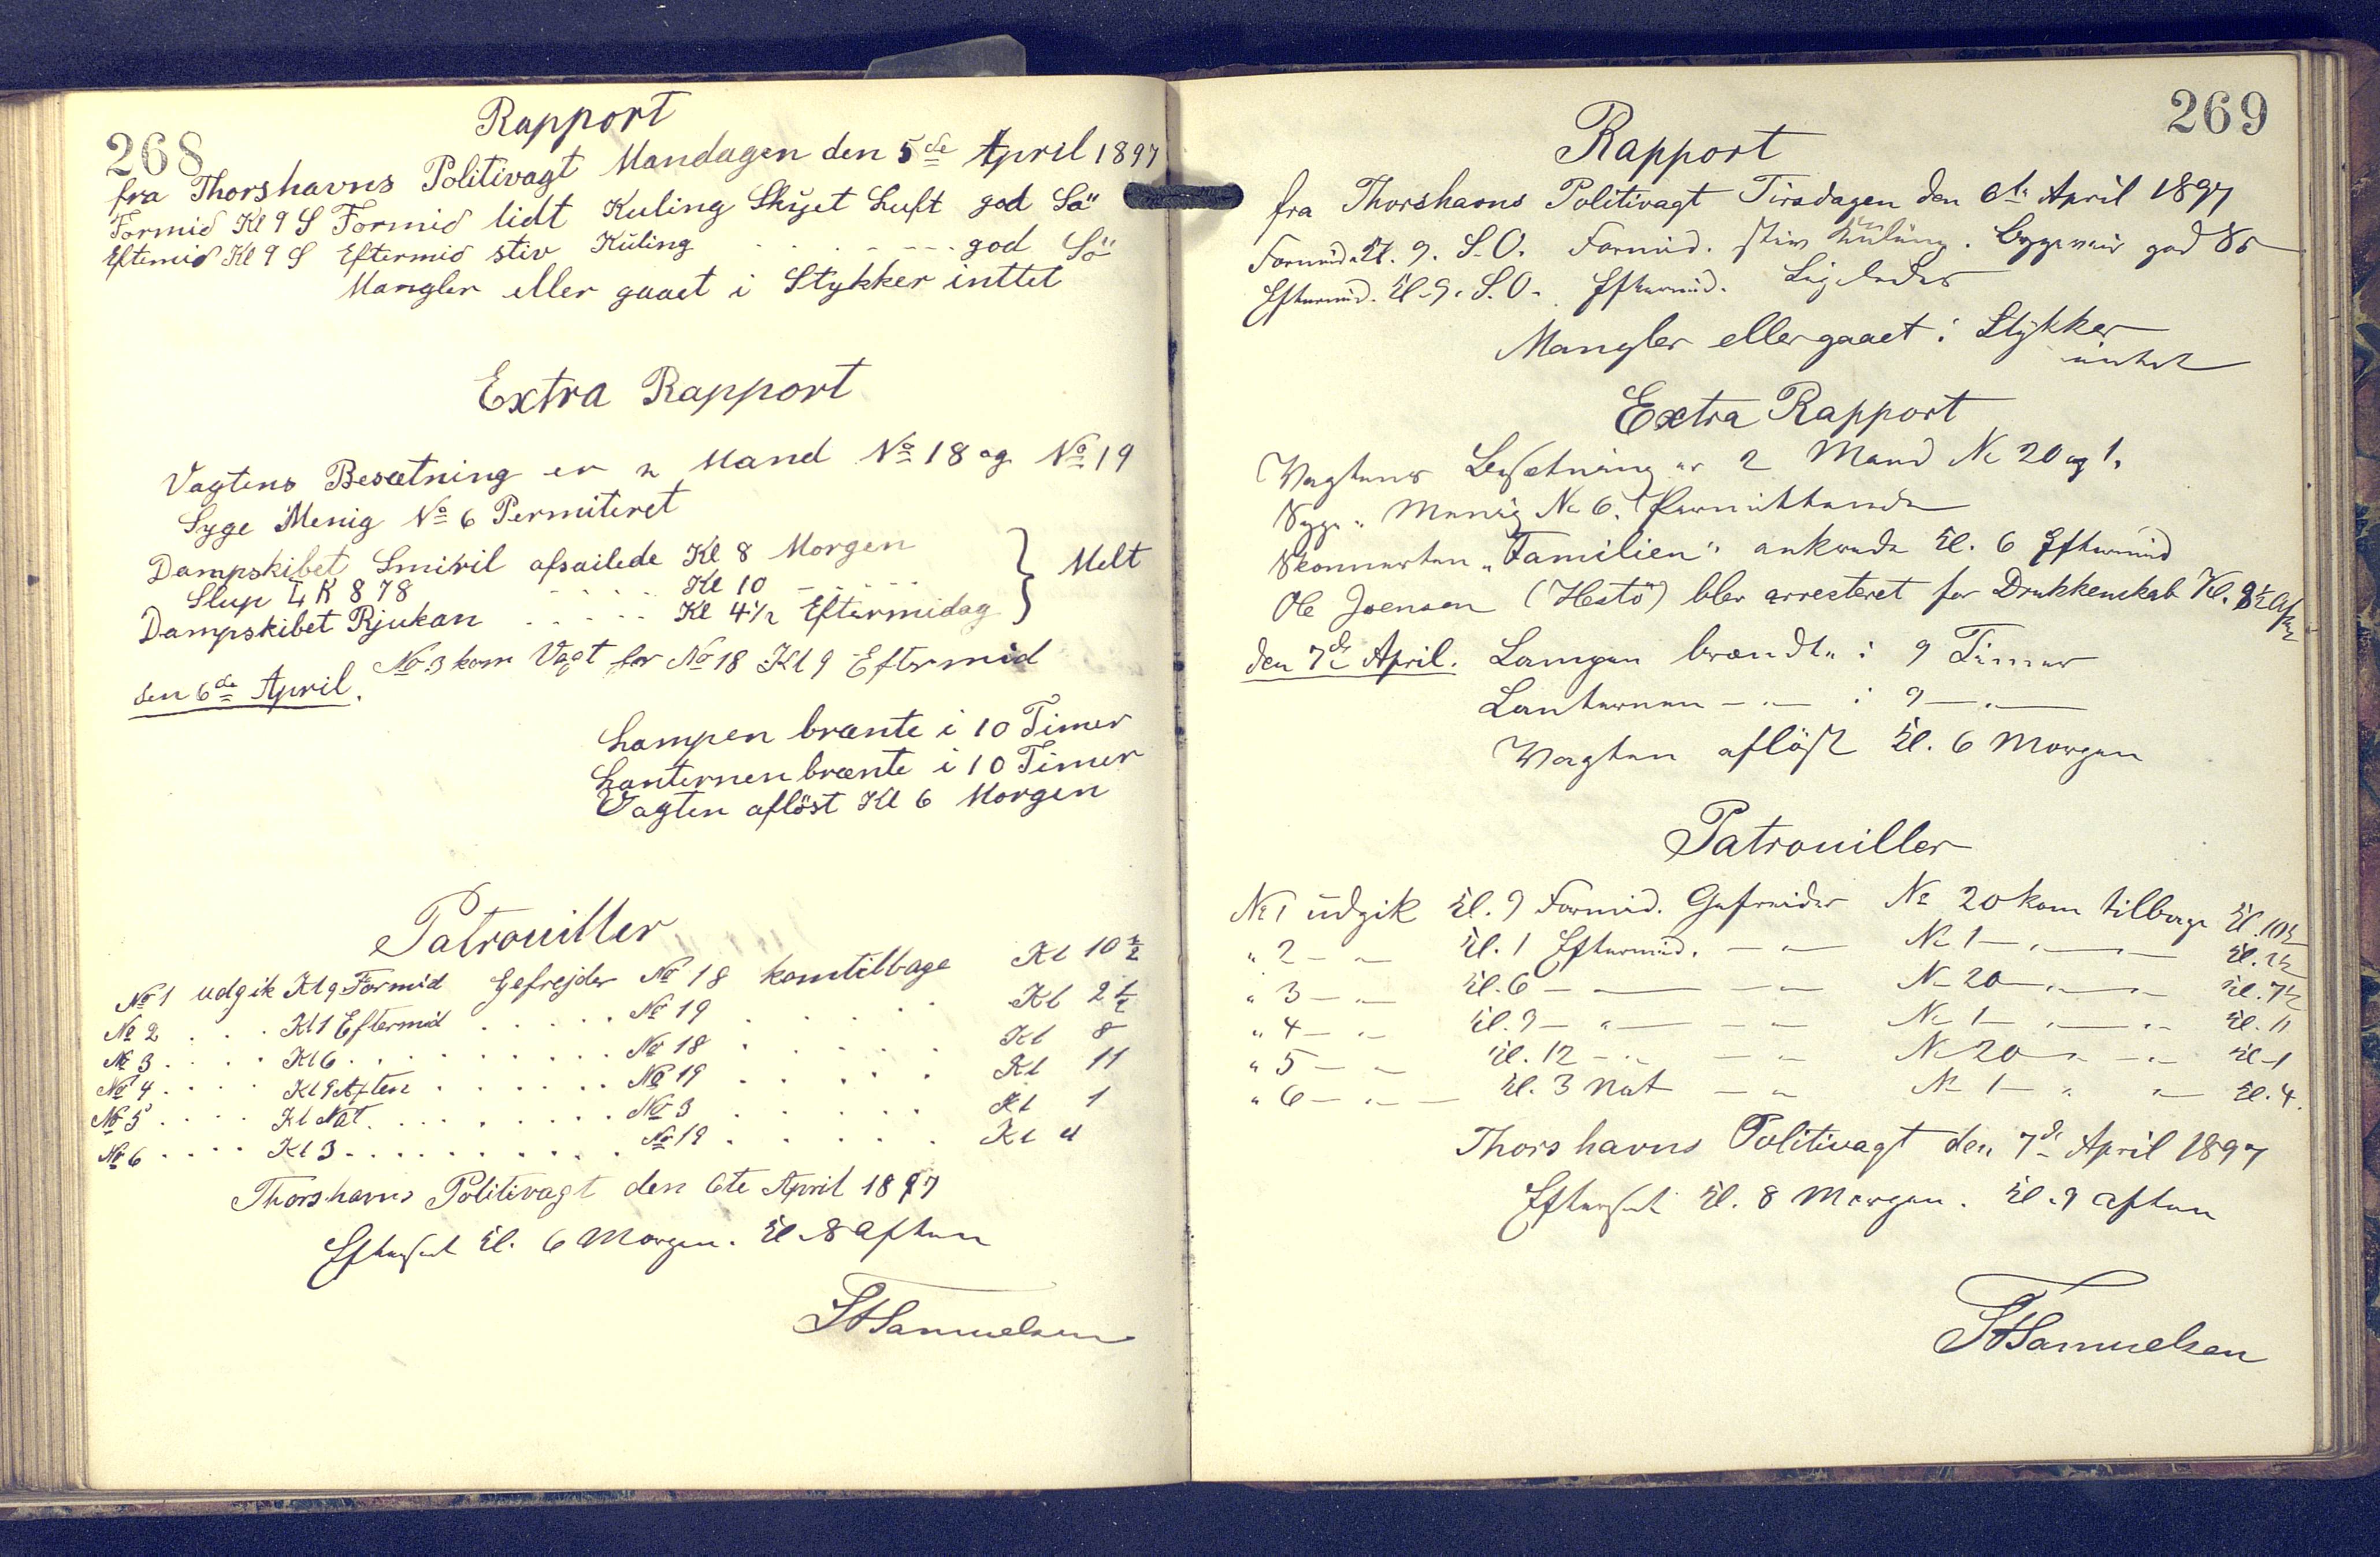 268
Rapport
fra Thorshavns Politivagt Mandagen den 5de April 1897
Formid Kl 9 S Formid lidt Kuling Skyet Luft god Sö
Eftemid Kl 9 S Eftermid stiv Kuling . . . - - - - god Sö
Mangler eller gaaet i Stykker inttet
Extra Rapport
Vagtens Besætning er 2 Mand No 18 og No 19
Syge Menig No 6 Permiteret
Dampskibet Smiril afsailede Kl 8 Morgen
Slup 878 . . . . . Kl 10 - . . . . } Melt
Dampskibet Rjukan . . . . . Kl 4 1/2 Eftermidag
No 3 kom Vagt for No 18 Kl 9 Eftermid
den 6de April.
Lampen brænte i 10 Timer
Lanternen brænte i 10 Timer
Vagten aflöst Kl 6 Morgen
Patrouiller
No 1 udgik Kl 9 Formid Gefrejder No 18 kom tilbage Kl 10 1/2
No 2 . . . Kl 1 Eftermid . . . . . No 19 . . . . . Kl 2 1/2
No 3 . . . . Kl 6 . . . . . . . . . No 18 . . . . . Kl 8
No 4 . . . . Kl 9 Aften . . . . . . No 19 . . . . . Kl 11
No 5 . . . . Kl Nat . . . . . . . . No 3 . . . . . Kl 1
No 6 . . . . Kl 3 . . . . . . . . . No 19 . . . . . Kl 4
Thorshavns Politivagt den 6te April 1897
Efterset Kl. 6 Morgen. Kl. 8 Aften
Samuelsen
269
Rapport
fra Thorshavns Politivagt Tirsdagen den 6te April 1897
Formid. Kl. 9. S.O. Formid. stiv Kuling. god Sö
Eftermid. Kl. 9. S.O. Eftermid. Ligeledes
Mangler eller gaaet i Stykker
intet
Extra Rapport
Vagtens Besætning er 2 Mand No 20 og 1.
Syge: Menig No 6. Permitterede
Skonnerten „Familien“ ankrede Kl. 6 Eftermid
Ole Joensen (Hestö) blev arresteret for Drukkenskab Kl. 8 1/2 Aften
den 7de April. Lampen brændte i 9 Timer
Lanternen - " - i 9 - " -
Vagten aflöst Kl. 6 Morgen
Patrouiller
No 1 udgik Kl. 9 Formid. Gefreider No 20 kom tilbage Kl. 10 1/2
" 2 - " - Kl. 1 Eftermid. - " - No 1 - " - " - Kl. 2 1/2
" 3 - " - Kl. 6 - " - - " - No 20 - " - " - Kl. 7 1/2
" 4 - " - Kl. 9 - " - - " - No 1 - " - " - Kl. 11
" 5 - " - Kl. 12 - " - - " - No 20 - " - " - Kl. 1
" 6 - " - Kl. 3 Nat - " - No 1 - " - " - Kl. 4.
Thorshavns Politivagt den 7de April 1897
Efterset Kl. 8 Morgen. Kl. 9 Aften
Samuelsen